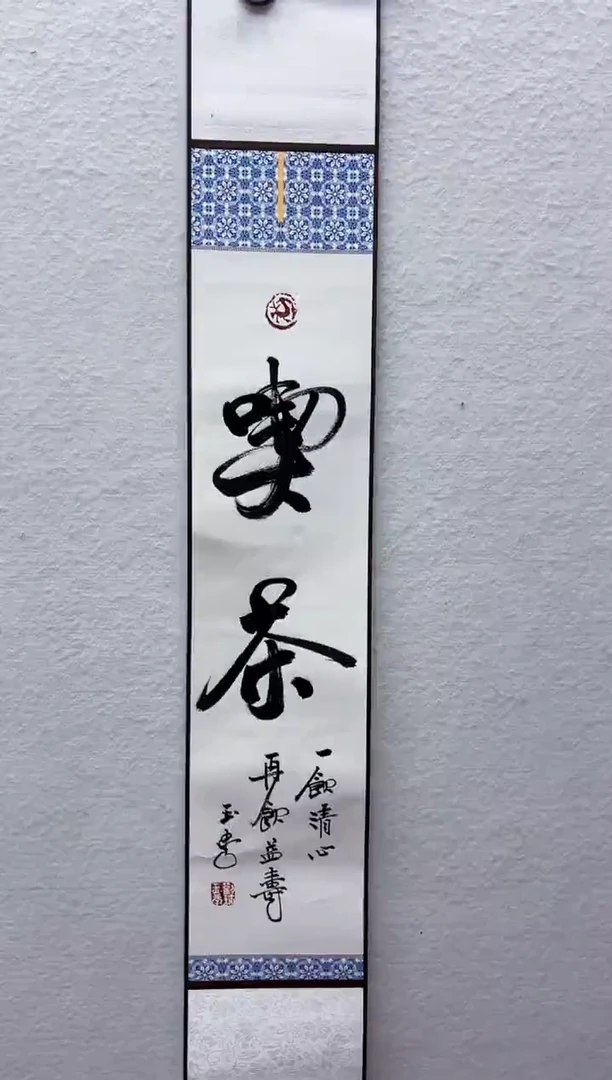 喫茶
一飲清心
再飲益壽
玉書